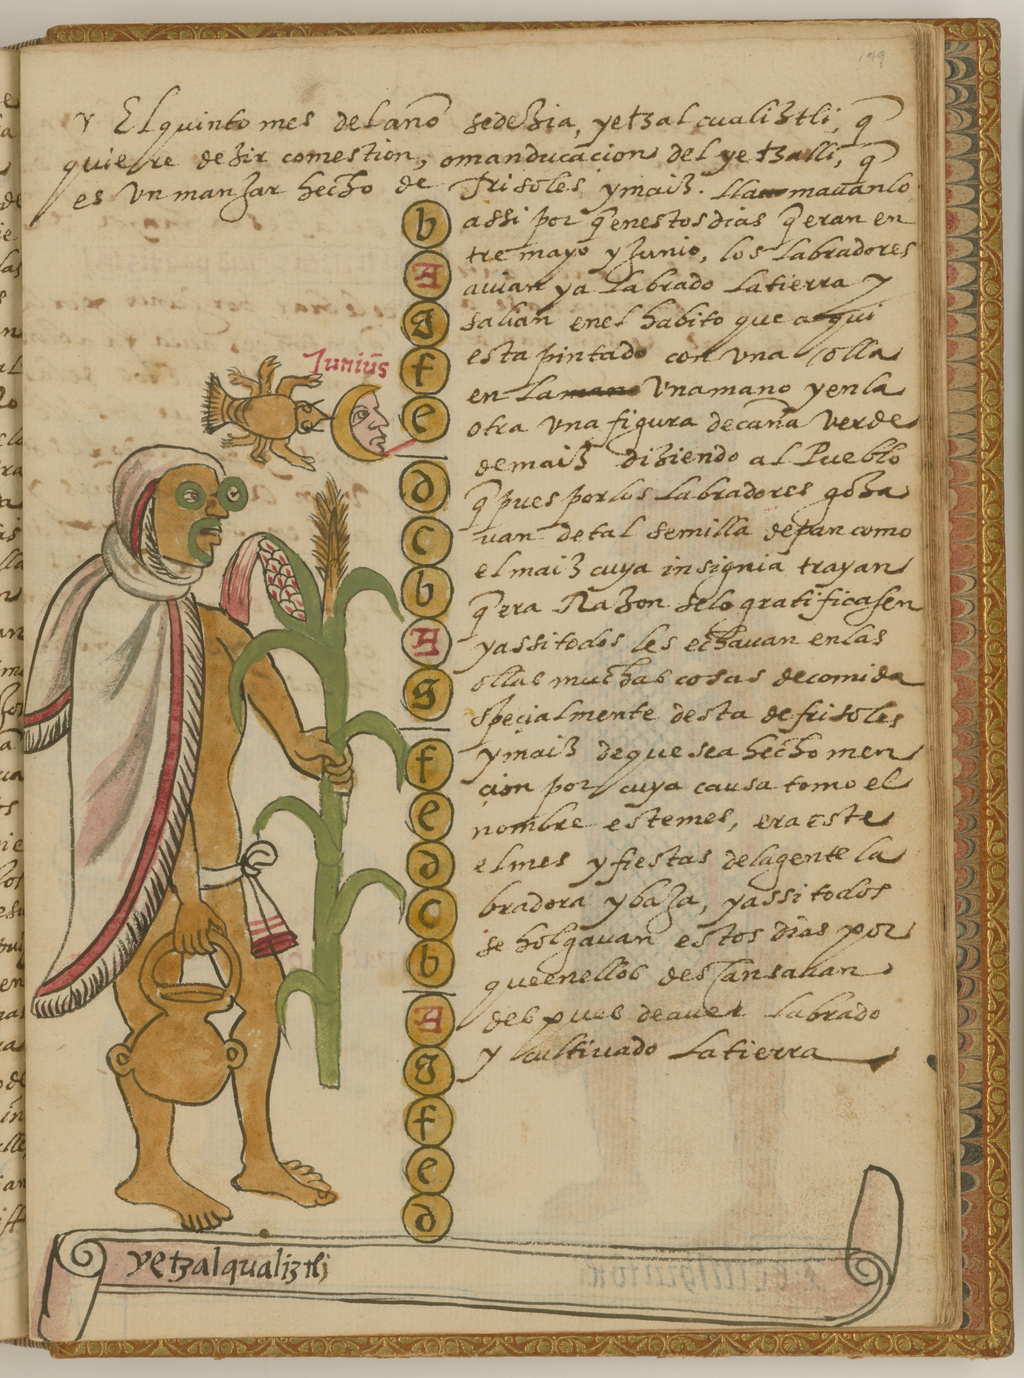 y El quinto mes del año sedezia, yetzalcualiztli, q̃
quiere dezir comestion, omanducacion del yetzalli, q̃
es Un manjar hecho de frisoles ymaiz. llamavanlo
assi por q̃enestos dias q̃eran en
tre mayo y Junio, los Labradores
avian ya Labrado Latierra y
salian enel habito que aqui
esta pintado con una olla
en La mano Unamano yenla
otra una figura decaña verde
demaiz diziendo al Pueblo
q̃ pues porlos Labradores goza
van detal semilla depan como
elmaiz cuya insignia trayan
q̃era Razon selo gratificasen
yassitodos les echavan enlas
ollas muchas cosas decomida
specialmente desta defrisoles
ymaiz dequesea hecho men
cion por cuya causa tomo el
nombre estemes, era este
elmes yfiestas delagente la
bradora ybaja, yassi todos
se holgavan estos dias por
queenellos descansavan
despues deaver Labrado
y cultivado Latierra
b
A
g
f
Junius
e
d
c
b
A
g
f
e
d
c
b
A
g
f
e
d
yetzalqualiztli